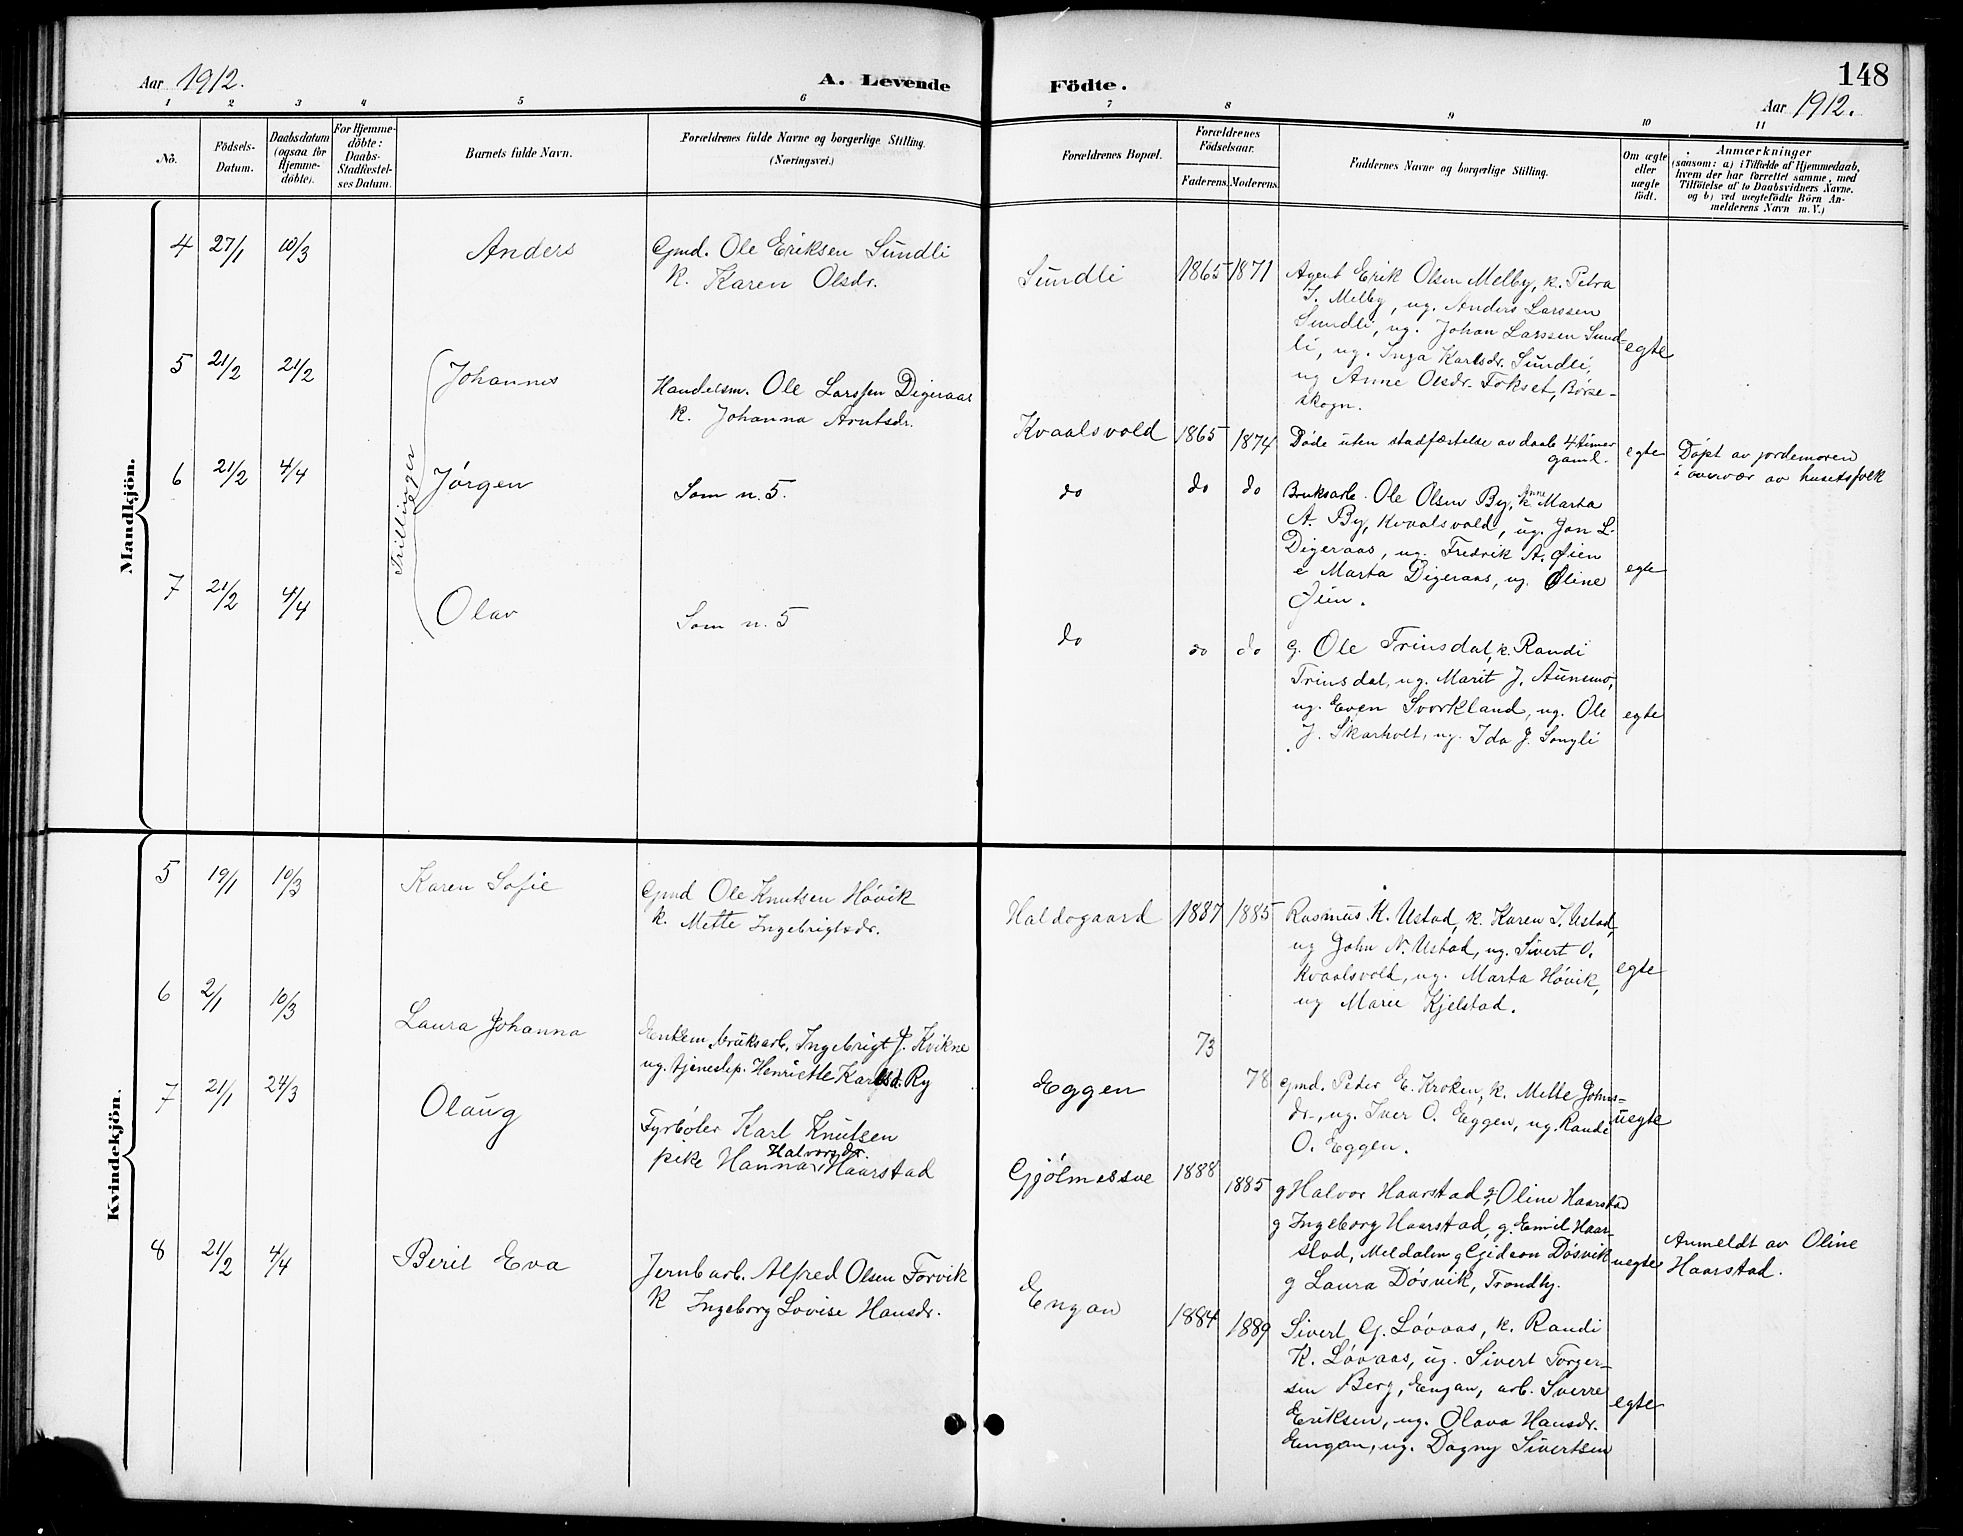 Aar 1912.
A. Levende
Födte.
148
Aar 1912.
1 2 3 4 5 6 7 8 9 10 11
No.
Födsels-
Datum.
Daabsdatum
(ogsaa for
Hjemme-
döbte).
For Hjemme-
döbte:
Daabs-
Stadfæstel-
ses Datum.
Barnets fulde Navn.
Forældrenes fulde Navne og borgerlige Stilling.
(Næringsvei.)
Forældrenes Bopæl.
Forældrenes
Födselsaar.
Faderens. Moderens.
Faddernes Navne og borgerlige Stilling.
Om ægte
eller
uægte
födt.
Anmærkninger
(saasom: a) i Tilfælde af Hjemmedaab,
hvem der har forrettet samme, med
Tilföielse af to Daabsvidners Navne.
og b) ved uægtefödte Börn An-
melderens Navn m. V.)
Mandkjön.
4 27/1 10/3 Anders
Gmd. Ole Eriksen Sundli
k. Karen Olsdr.
Sundli 1865 1871
Agent Erik Olsen Melby, k. Petra
J. Melby, ug. Anders Larssen
Sundli, ug. Johan Larssen Sund-
li, ug. Inga Karlsdr. Sundli,
ug Anne Olsdr. Fokset, Børse-
skogn.
egte
Trillinger
5 21/2 21/2 Johannes
Handelsm. Ole Larssen Digeraas
k. Johanna Arntsdr.
Kvaalsvold 1865 1874
Døde uten stadfæstelse av daab 4 timer
gaml.
egte
Døpt av jordemoren
i overvær av husetsfolk
6 21/2 4/4 Jørgen
Som n. 5.
do do do
Bruksarb. Ole Olsen By, k. Anne Marta
A. By, Kvaalsvold, ug. Jon L.
Digeraas, ug. Fredrik A. Øien
e Marta Digeraas, ug. Oline
Øien.
egte
7 21/2 4/4 Olav
Som n. 5
do do do
g. Ole Trinsdal, k. Randi
Trinsdal, ug. Marit J. Aunemo,
ug. Even Svorkland, ug. Ole
J. Skarholt, ug. Ida J. Songli
egte
Kvindekjön.
5 19/1 10/3 Karen Sofie
Gmd Ole Knutsen Høvik
k. Mette Ingebrigtsdr.
Haldogaard 1887 1885
Rasmus K. Ustad, k. Karen I. Ustad,
ug John N. Ustad, ug. Sivert O.
Kvaalsvold, ug. Marta Høvik,
ug Marie Kjelstad.
egte
6 2/1 10/3 Laura Johanna
Enkem. bruksarb. Ingebrigt J. Kvikne
ug. tjenestep. Henriette Karlsd. Ry
Eggen 73 78
Gmd. Peter E. Kroken, k. Mette Johns-
dr., ug. Iver O. Eggen, ug. Randi
O. Eggen.
uegte
7 21/1 24/3 Olaug
Fyrbøter Karl Knutsen
pike Hanna Halvorsdr. Haarstad
Gjølmessve 1888 1885
g Halvor Haarstad, g. Oline Haarstad
g Ingeborg Haarstad, g. Emil Haar-
stad, Meldalen g Gideon Døsvik
g Laura Døsvik, Trondhj.
uegte
Anmeldt av Oline
Haarstad.
8 21/2 4/4 Berit Eva
Jernbarb. Alfred Olsen Forvik
k Ingeborg Lovise Hansdr.
Engan 1884 1889
Sivert G. Løvaas, k. Randi
K. Løvaas, ug. Sivert Torger-
sen Berg, Engan, arb. Sverre
Eriksen, ug. Olava Hansdr.
Engan, ug. Dagny Sivertsen
egte